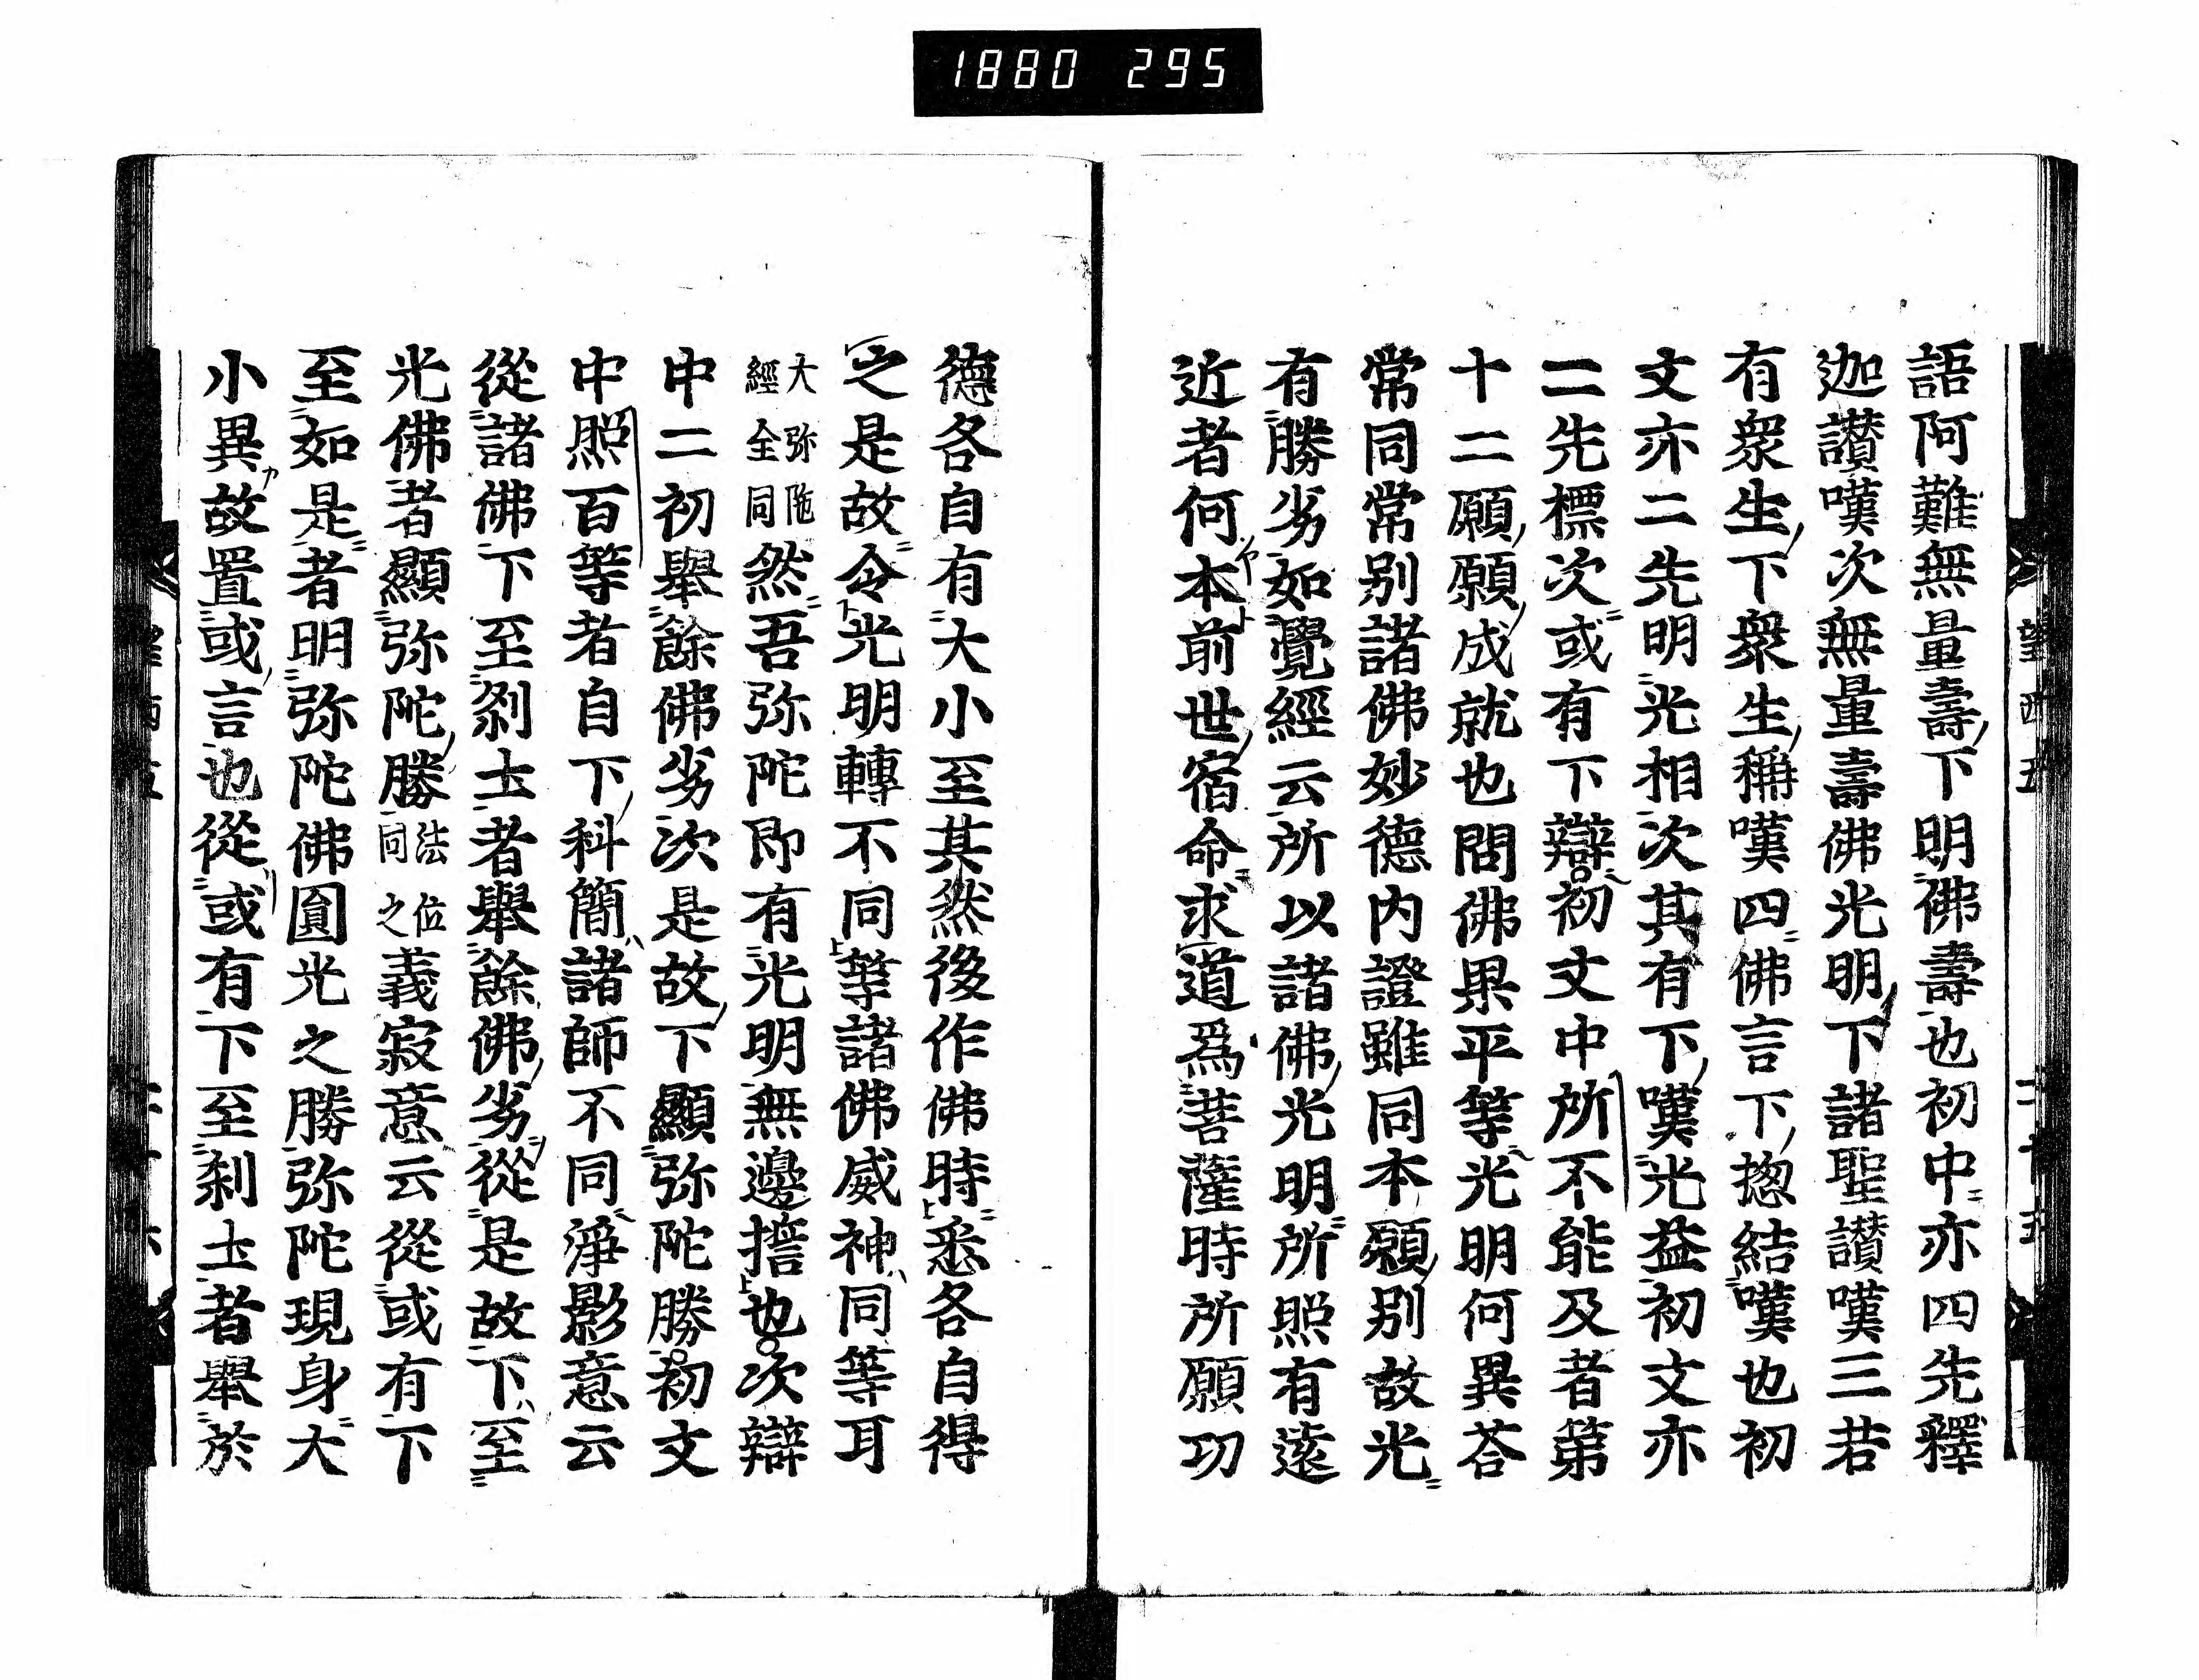 1880 295
語阿難無量壽下明佛壽也初中亦四先釋
迦讃嘆次無量壽佛光明下諸聖讃嘆三若
有衆生下衆生稱嘆四佛言下揔結嘆也初
文亦二先明光相次其有下嘆光益初文亦
二先標次或有下辯初文中所不能及者第
十二願願成就也問佛果平等光明何異荅
常同常別諸佛妙德内證雖同本願別故光
有勝劣如覺經云所以諸佛光明所照有遠
近者何本前世宿命求道爲菩薩時所願功
德各自有大小至其然後作佛時悉各自得
之是故令光明轉不同等諸佛威神同等耳
大弥陁
經全同
然吾弥陀即有光明無邊擔也次辯
中二初舉餘佛劣次是故下顯弥陀勝初文
中照百等者自下科簡諸師不同淨影意云
從諸佛下至刹土者舉餘佛劣從是故下至
光佛者顯弥陀勝
法位
同之
義寂意云從或有下
至如是者明弥陀佛圓光之勝弥陀現身大
小異故置或言也從或有下至刹土者舉於